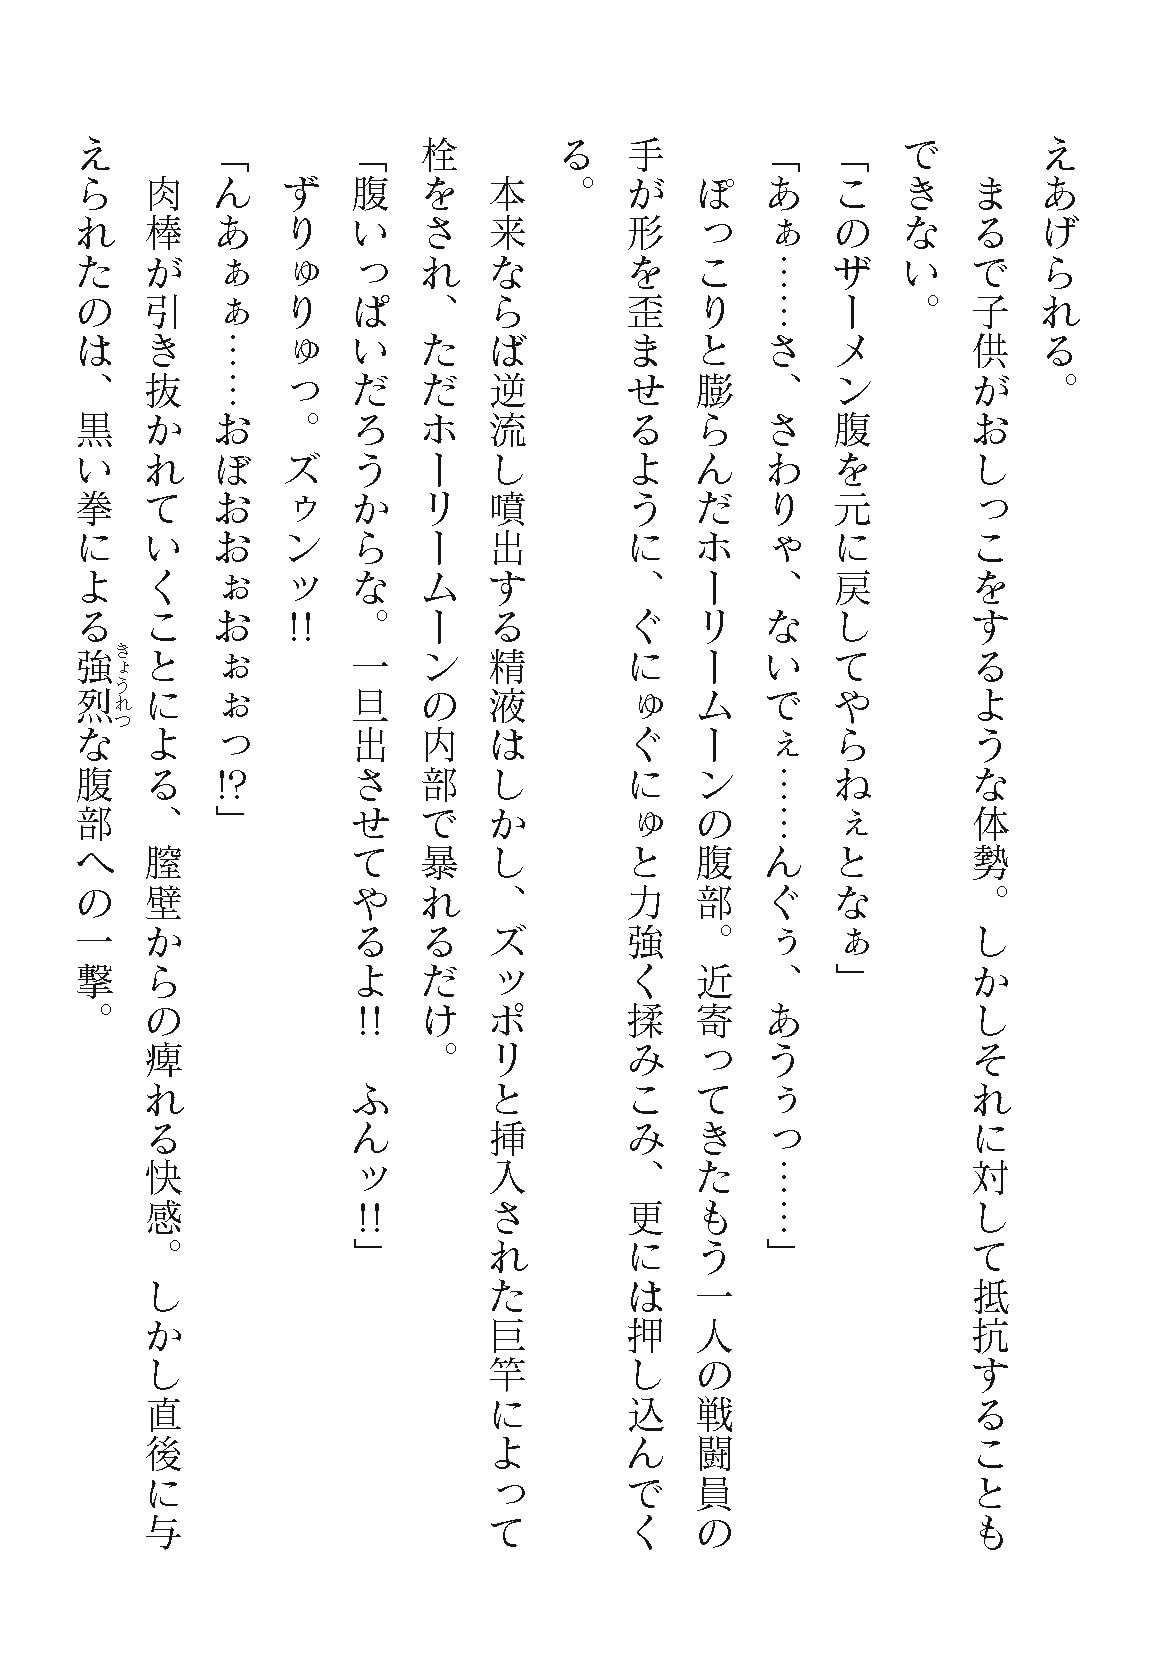 えあげられる。
　まるで子供がおしっこをするような体勢。しかしそれに対して抵抗することも
できない。
「このザーメン腹を元に戻してやらねぇとなぁ」
「あぁ……さ、さわりゃ、ないでぇ……んぐぅ、あうぅっ……」
　ぽっこりと膨らんだホーリームーンの腹部。近寄ってきたもう一人の戦闘員の
手が形を歪ませるように、ぐにゅぐにゅと力強く揉みこみ、更には押し込んでく
る。
　本来ならば逆流し噴出する精液はしかし、ズッポリと挿入された巨竿によって
栓をされ、ただホーリームーンの内部で暴れるだけ。
「腹いっぱいだろうからな。一旦出させてやるよ!!　ふんッ!!」
　ずりゅりゅっ。ズゥンッ!!
「んあぁぁ……おぼおおぉおぉぉっ!?」
　肉棒が引き抜かれていくことによる、膣壁からの痺れる快感。しかし直後に与
えられたのは、黒い拳による強烈きょうれつな腹部への一撃。